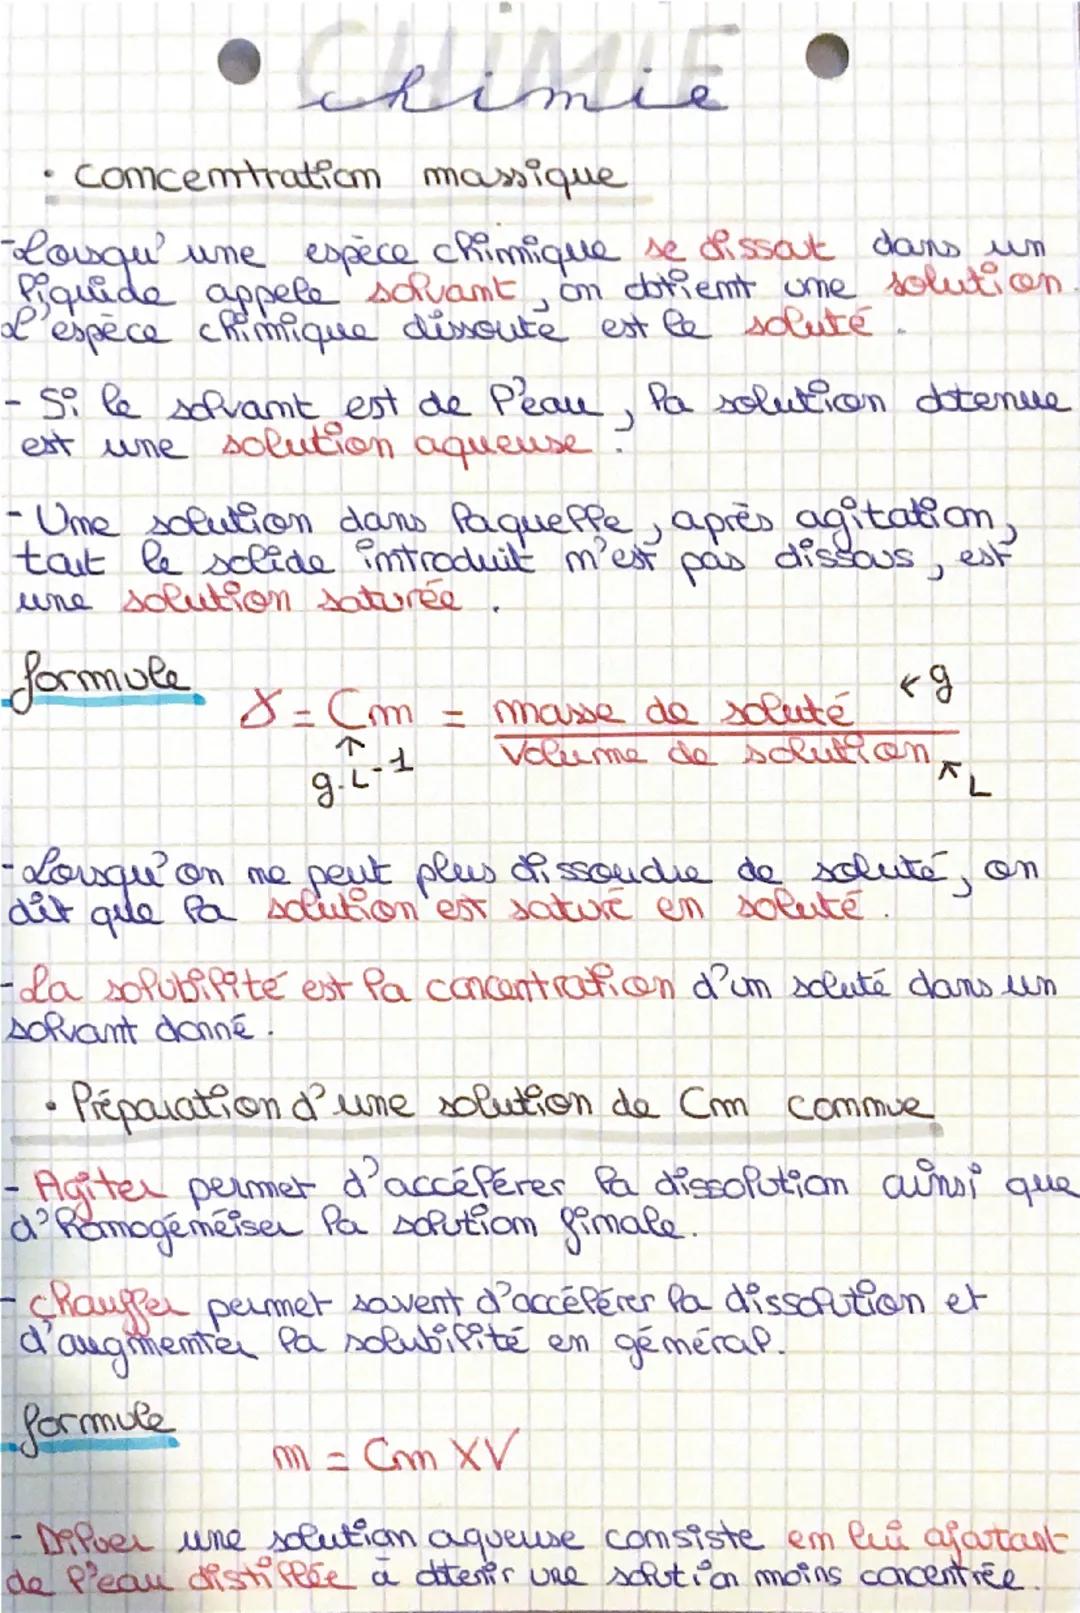 CHIMIE
chimie
• Concentration massique
- Lorsqu'une espèce chimique se dissout dans un
liquide appelé solvant, on obtient une solution.
L'espèce chimique dissoute est le soluté.
- Si le solvant est de l'eau, la solution obtenue
est une solution aqueuse.
- Une solution dans laquelle, après agitation,
tout le solide introduit n'est pas dissous, est
une solution saturée.
formule
γ = Cm = masse de soluté ← g
volume de solution ↖ L
↑
g.L-1
- Lorsqu'on ne peut plus dissoudre de soluté, on
dit que la solution est saturé en soluté.
- La solubilité est la concantration d'un soluté dans un
solvant donné.
• Préparation d'une solution de Cm connue
- Agiter permet d'accélérer la dissolution ainsi que
d'homogénéiser la solution finale.
- chauffer permet souvent d'accélérer la dissolution et
d'augmenter la solubilité en général.
formule
m = Cm X V
- Diluer une solution aqueuse consiste en lui ajoutant
de l'eau distillée à obtenir une solution moins concentrée.